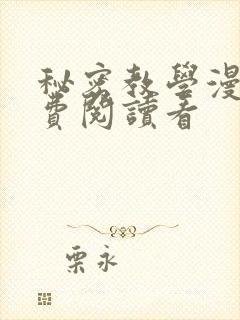 秘密教學漫
費閱讀看
栗永